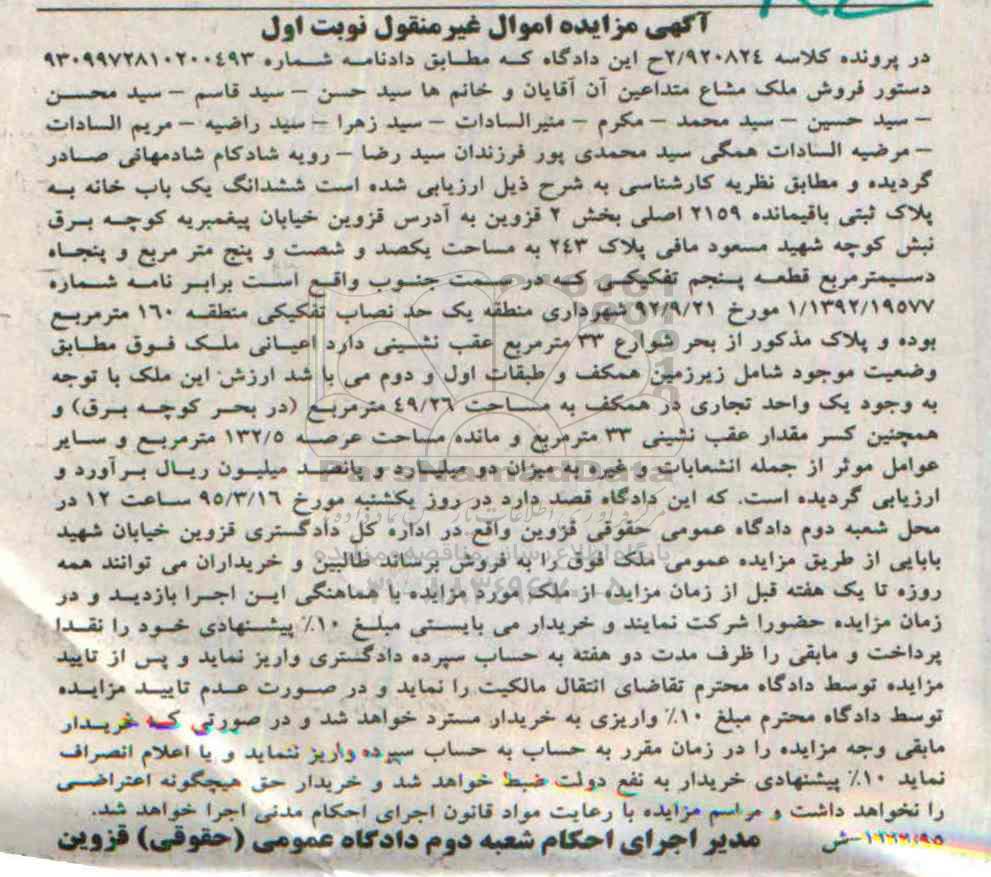 آگهی مزایده اموال غیرمنقول نوبت اول
در پرونده کلاسه ۲/۹۲۰۸۲۴ح این دادگاه که مطابق دادنامه شماره ۹۳۰۹۹۷۲۸۱۰۲۰۰۴۹۳
دستور فروش ملک مشاع متداعین آن آقایان و خانم ها سید حسن – سید قاسم – سید محسن
– سید حسین – سید محمد – مکرم – منیرالسادات – سید زهرا – سید راضیه – مریم السادات
– مرضیه السادات همگی سید محمدی پور فرزندان سید رضا – رویه شادکام شادمهانی صادر
گردیده و مطابق نظریه کارشناسی به شرح ذیل ارزیابی شده است ششدانگ یک باب خانه به
پلاک ثبتی باقیمانده ۲۱۵۹ اصلی بخش ۲ قزوین به آدرس قزوین خیابان پیغمبریه کوچه برق
نبش کوچه شهید مسعود مافی پلاک ۲۴۳ به مساحت یکصد و شصت و پنج متر مربع و پنجاه
دسیمترمربع قطعه پنجم تفکیکی که در سمت جنوب واقع است برابر نامه شماره
۱/۱۳۹۲/۱۹۵۷۷ مورخ ۹۲/۹/۲۱ شهرداری منطقه یک حد نصاب تفکیکی منطقه ۱۶۰ مترمربع
بوده و پلاک مذکور از بحر شوارع ۳۳ مترمربع عقب نشینی دارد اعیانی ملک فوق مطابق
وضعیت موجود شامل زیرزمین همکف و طبقات اول و دوم می با شد ارزش این ملک با توجه
به وجود یک واحد تجاری در همکف به مساحت ۴۹/۲۶ مترمربع (در بحر کوچه برق) و
همچنین کسر مقدار عقب نشینی ۳۳ مترمربع و مانده مساحت عرصه ۱۳۲/۵ مترمربع و سایر
عوامل موثر از جمله انشعابات و غیره به میزان دو میلیارد و پانصد میلیون ریال برآورد و
ارزیابی گردیده است. که این دادگاه قصد دارد در روز یکشنبه مورخ ۹۵/۳/۱۶ ساعت ۱۲ در
محل شعبه دوم دادگاه عمومی حقوقی قزوین واقع در اداره کل دادگستری قزوین خیابان شهید
بابایی از طریق مزایده عمومی ملک فوق را به فروش برساند طالبین و خریداران می توانند همه
روزه تا یک هفته قبل از زمان مزایده از ملک مورد مزایده با هماهنگی این اجرا بازدید و در
زمان مزایده حضورا شرکت نمایند و خریدار می بایستی مبلغ ۱۰٪ پیشنهادی خود را نقدا
پرداخت و مابقی را ظرف مدت دو هفته به حساب سپرده دادگستری واریز نماید و پس از تایید
مزایده توسط دادگاه محترم تقاضای انتقال مالکیت را نماید و در صورت عدم تایید مزایده
توسط دادگاه محترم مبلغ ۱۰٪ واریزی به خریدار مسترد خواهد شد و در صورتی که خریدار
مابقی وجه مزایده را در زمان مقرر به حساب به حساب سپرده واریز ننماید و یا اعلام انصراف
نماید ۱۰٪ پیشنهادی خریدار به نفع دولت ضبط خواهد شد و خریدار حق هیچگونه اعتراضی
را نخواهد داشت و مراسم مزایده با رعایت مواد قانون اجرای احکام مدنی اجرا خواهد شد.
مدیر اجرای احکام شعبه دوم دادگاه عمومی (حقوقی) قزوین
ParsNamadData